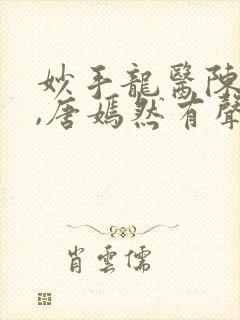 妙手龍醫陳
,唐嫣然有聲
肖雲儒